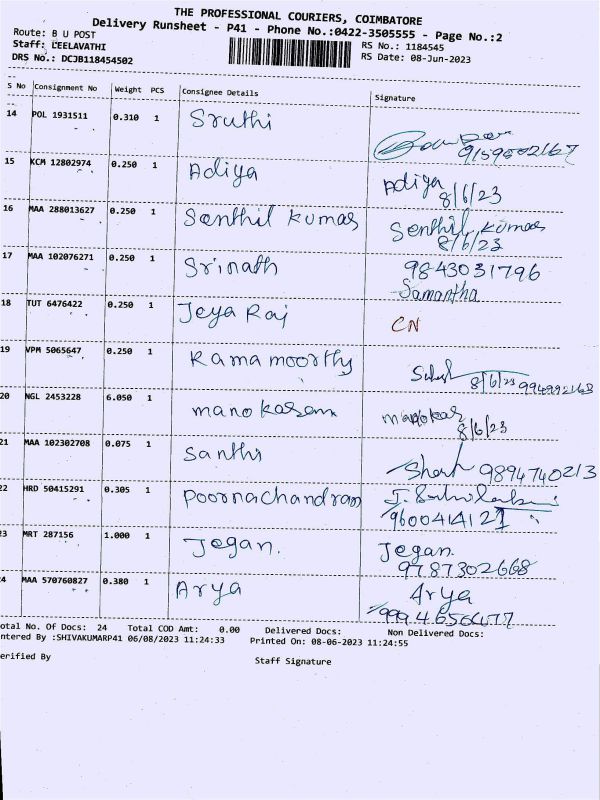 THE PROFESSIONAL COURIERS, COIMBATORE
Delivery Runsheet - P41 - Phone No.:0422-3505555 - Page No.:2
Route: B U POST
Staff: LEELAVATHI
RS No.: 1184545
DRS No.: DCJB118454502
RS Date: 08-Jun-2023
S No Consignment No Weight PCS Consignee Details Signature
14 POL 1931511 0.310 1 Sruthi
9159602167
15 KCM 12802974 0.250 1 Adiya Adiya
8/6/23
16 MAA 288013627 0.250 1 Senthil Kumar Senthil Kumar
8/6/23
17 MAA 102076271 0.250 1 Srinath 9843031796
Samantha
18 TUT 6476422 0.250 1 Jeya Raj CN
19 VPM 5065647 0.250 1 Ramamoorthy
8/6/23
20 NGL 2453228 6.050 1 manokaran manokar
8/6/23
21 MAA 102302708 0.075 1 Santhi 9894740213
22 HRD 50415291 0.305 1 Poornachandran
9600414121
23 MRT 287156 1.000 1 Jegan. Jegan
9787302668
24 MAA 570760827 0.380 1 Arya Arya
otal No. Of Docs: 24 Total COD Amt: 0.00 Delivered Docs: Non Delivered Docs:
ntered By :SHIVAKUMARP41 06/08/2023 11:24:33 Printed On: 08-06-2023 11:24:55
erified By
Staff Signature